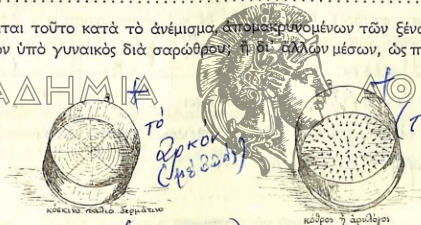 εται τοῦτο κατὰ τὸ ἀνέμισμα, ἀπομακρυνομένων τῶν ξένω
ν ὑπὸ γυναικὸς διὰ σαρώθρου; ἢ δι' ἄλλων μέσων, ὡς π
ΑΔΗΜΙΑ
ΑΘ
τὸ
(τ
κόσκινο παλιὸ δερμάτινο
κόθρος ἢ ἀρυλόγος